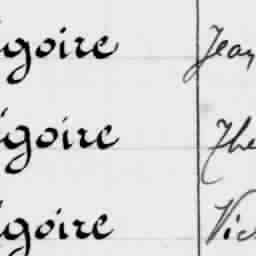 égoire Jean
égoire The
égoire Vic